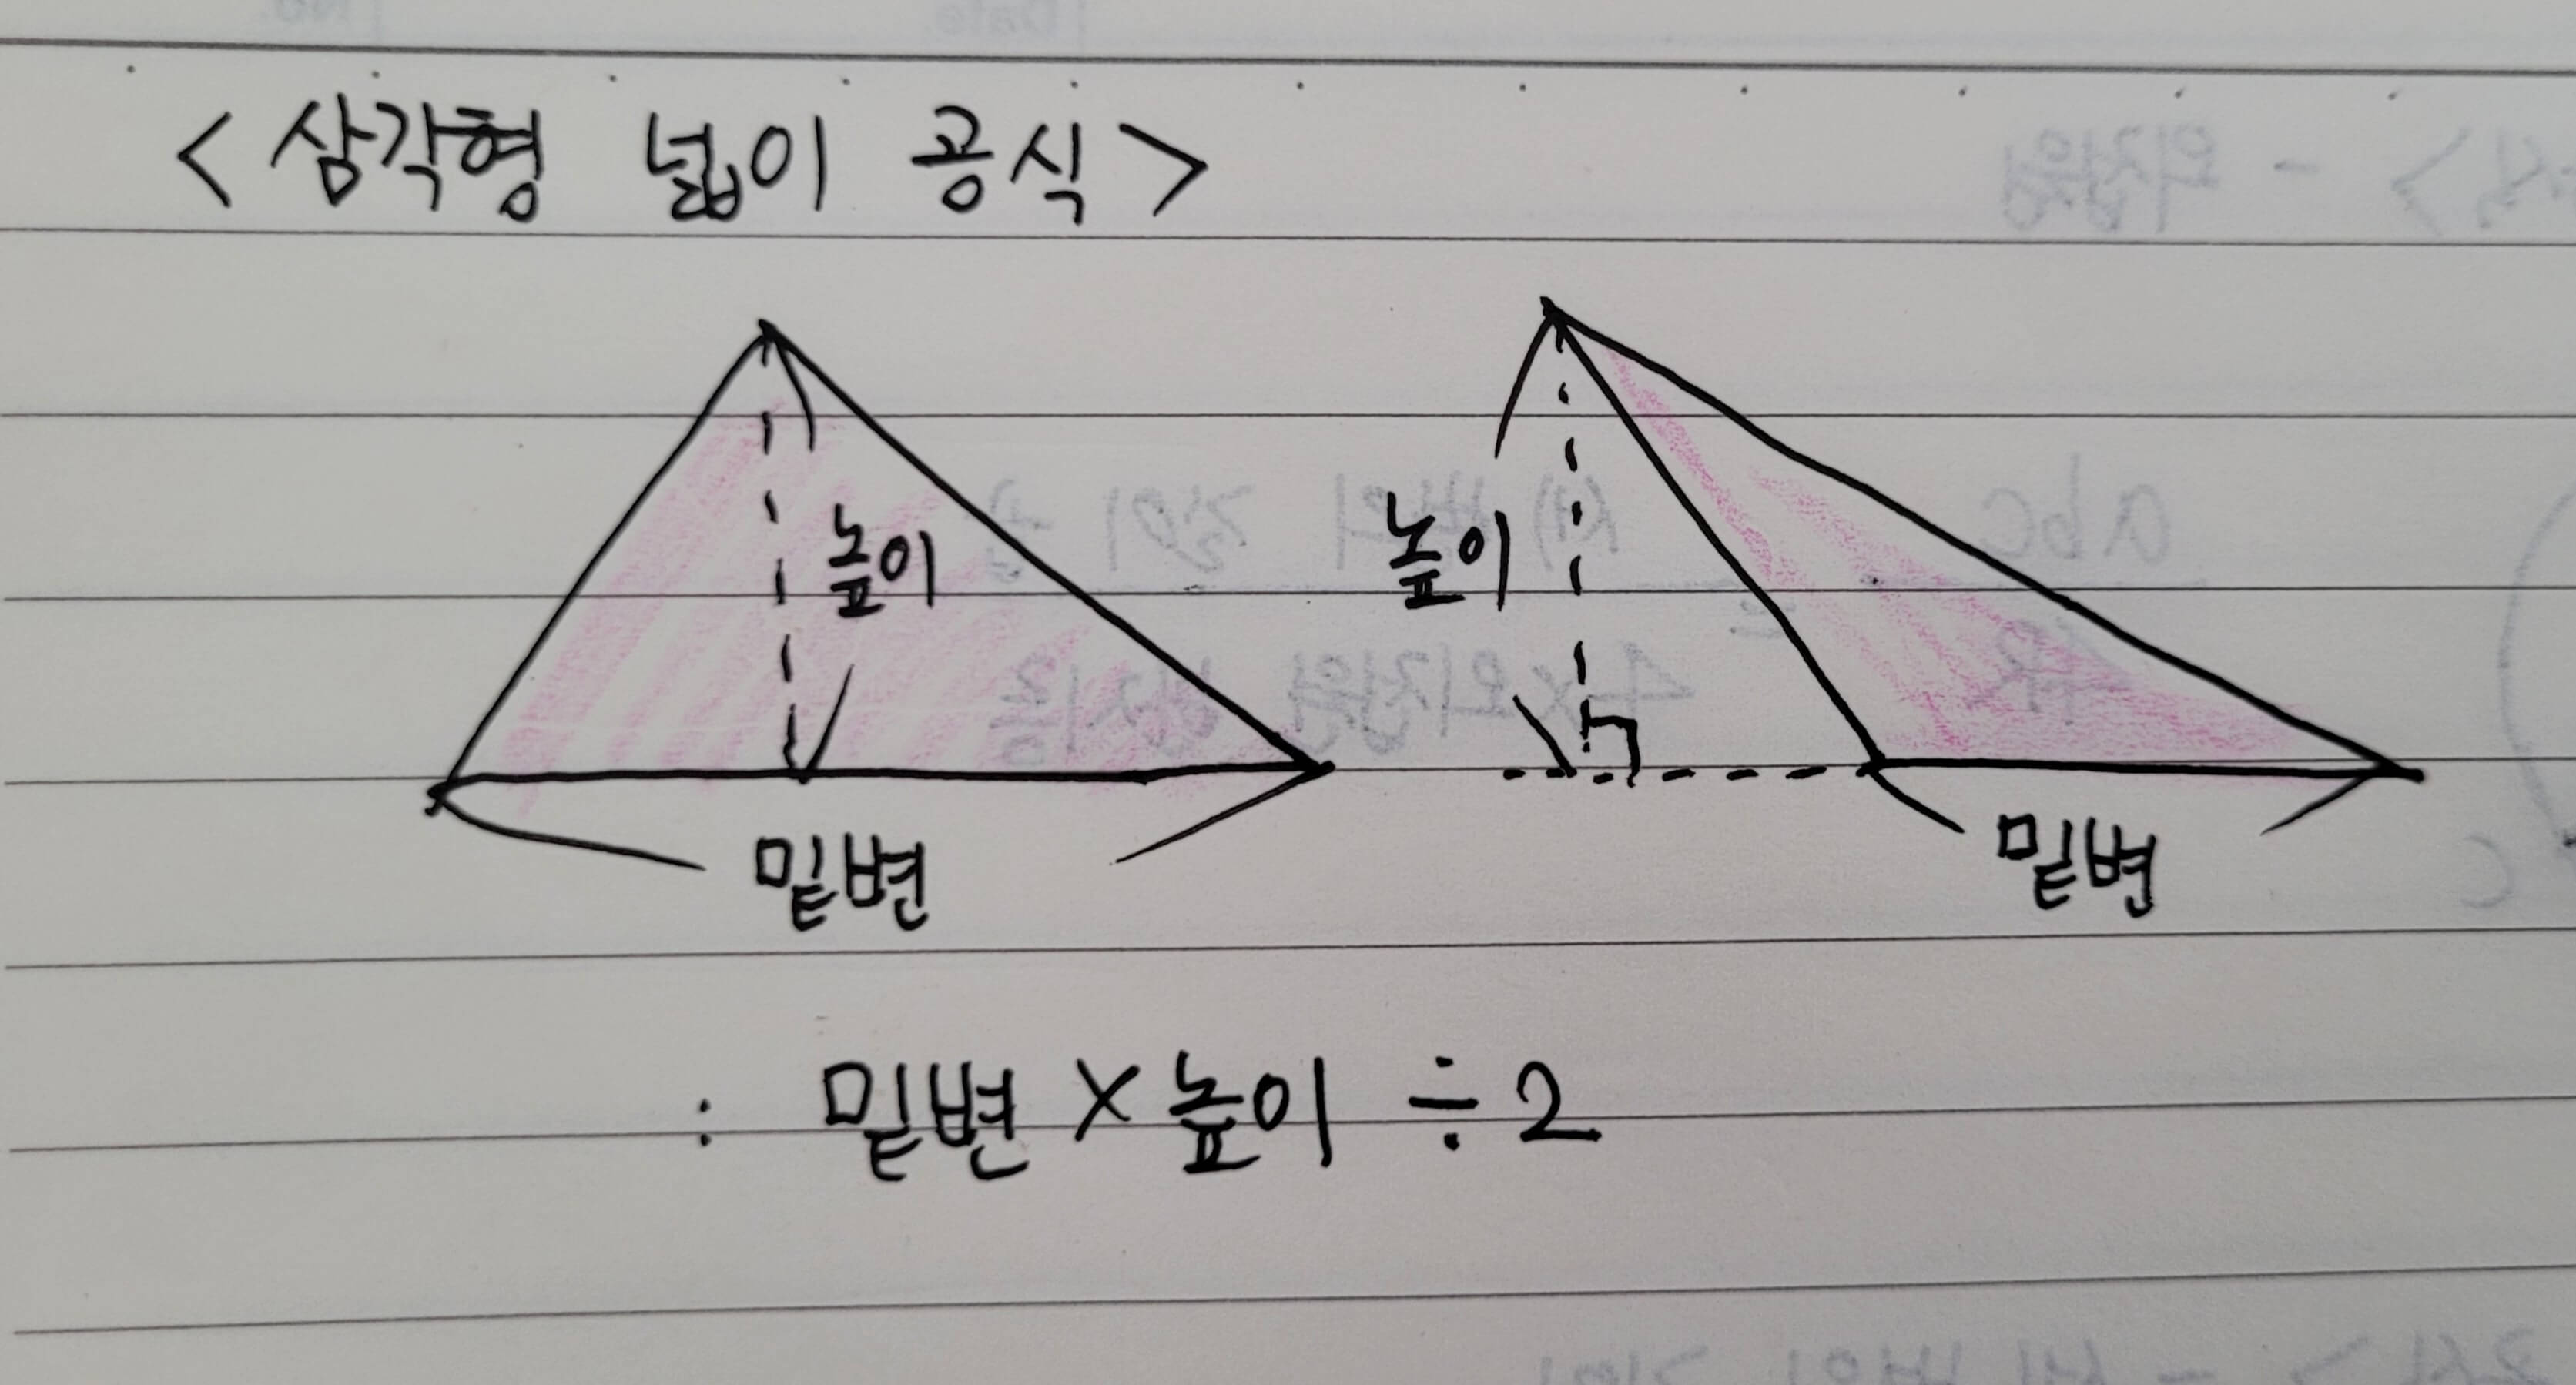 <삼각형 넓이 공식>
높이
높이
밑변
밑변
: 밑변 × 높이 ÷ 2